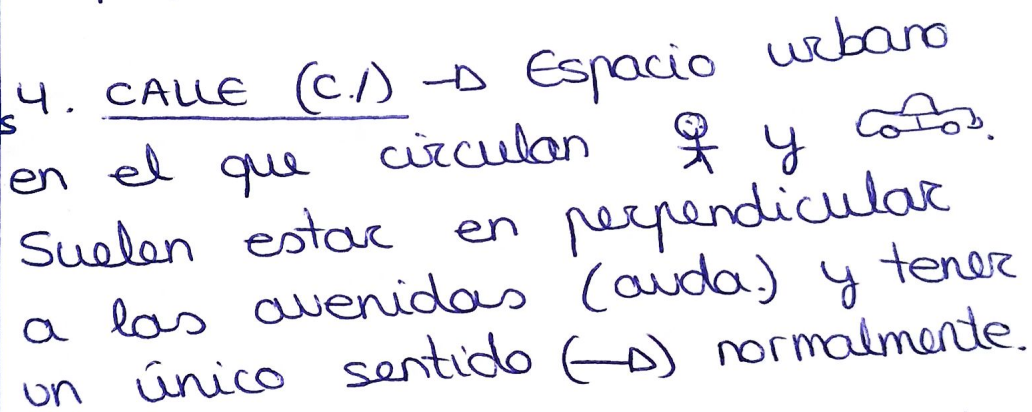 4. CALLE (C./) → Espacio urbano
en el que circulan y
Suelen estar en perpendicular
a las avenidas (avda.) y tener
un único sentido (→) normalmente.